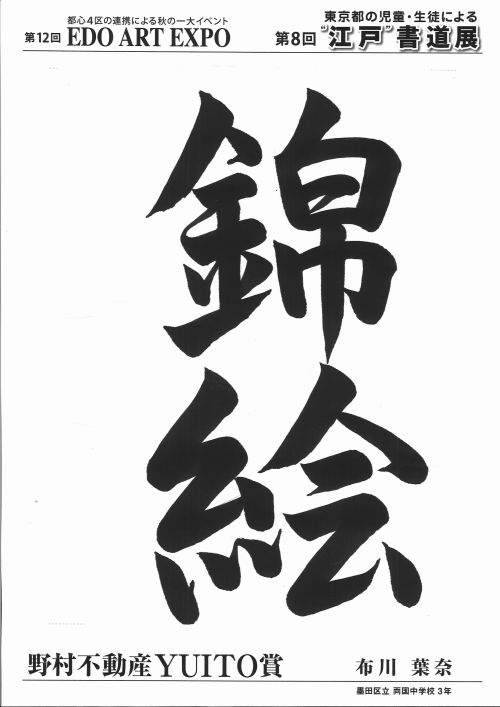 都心4区の連携による秋の一大イベント
第12回 EDO ART EXPO
東京都の児童・生徒による
第8回 "江戸"書道展
錦
絵
野村不動産YUITO賞
布川 葉奈
墨田区立 両国中学校 3年